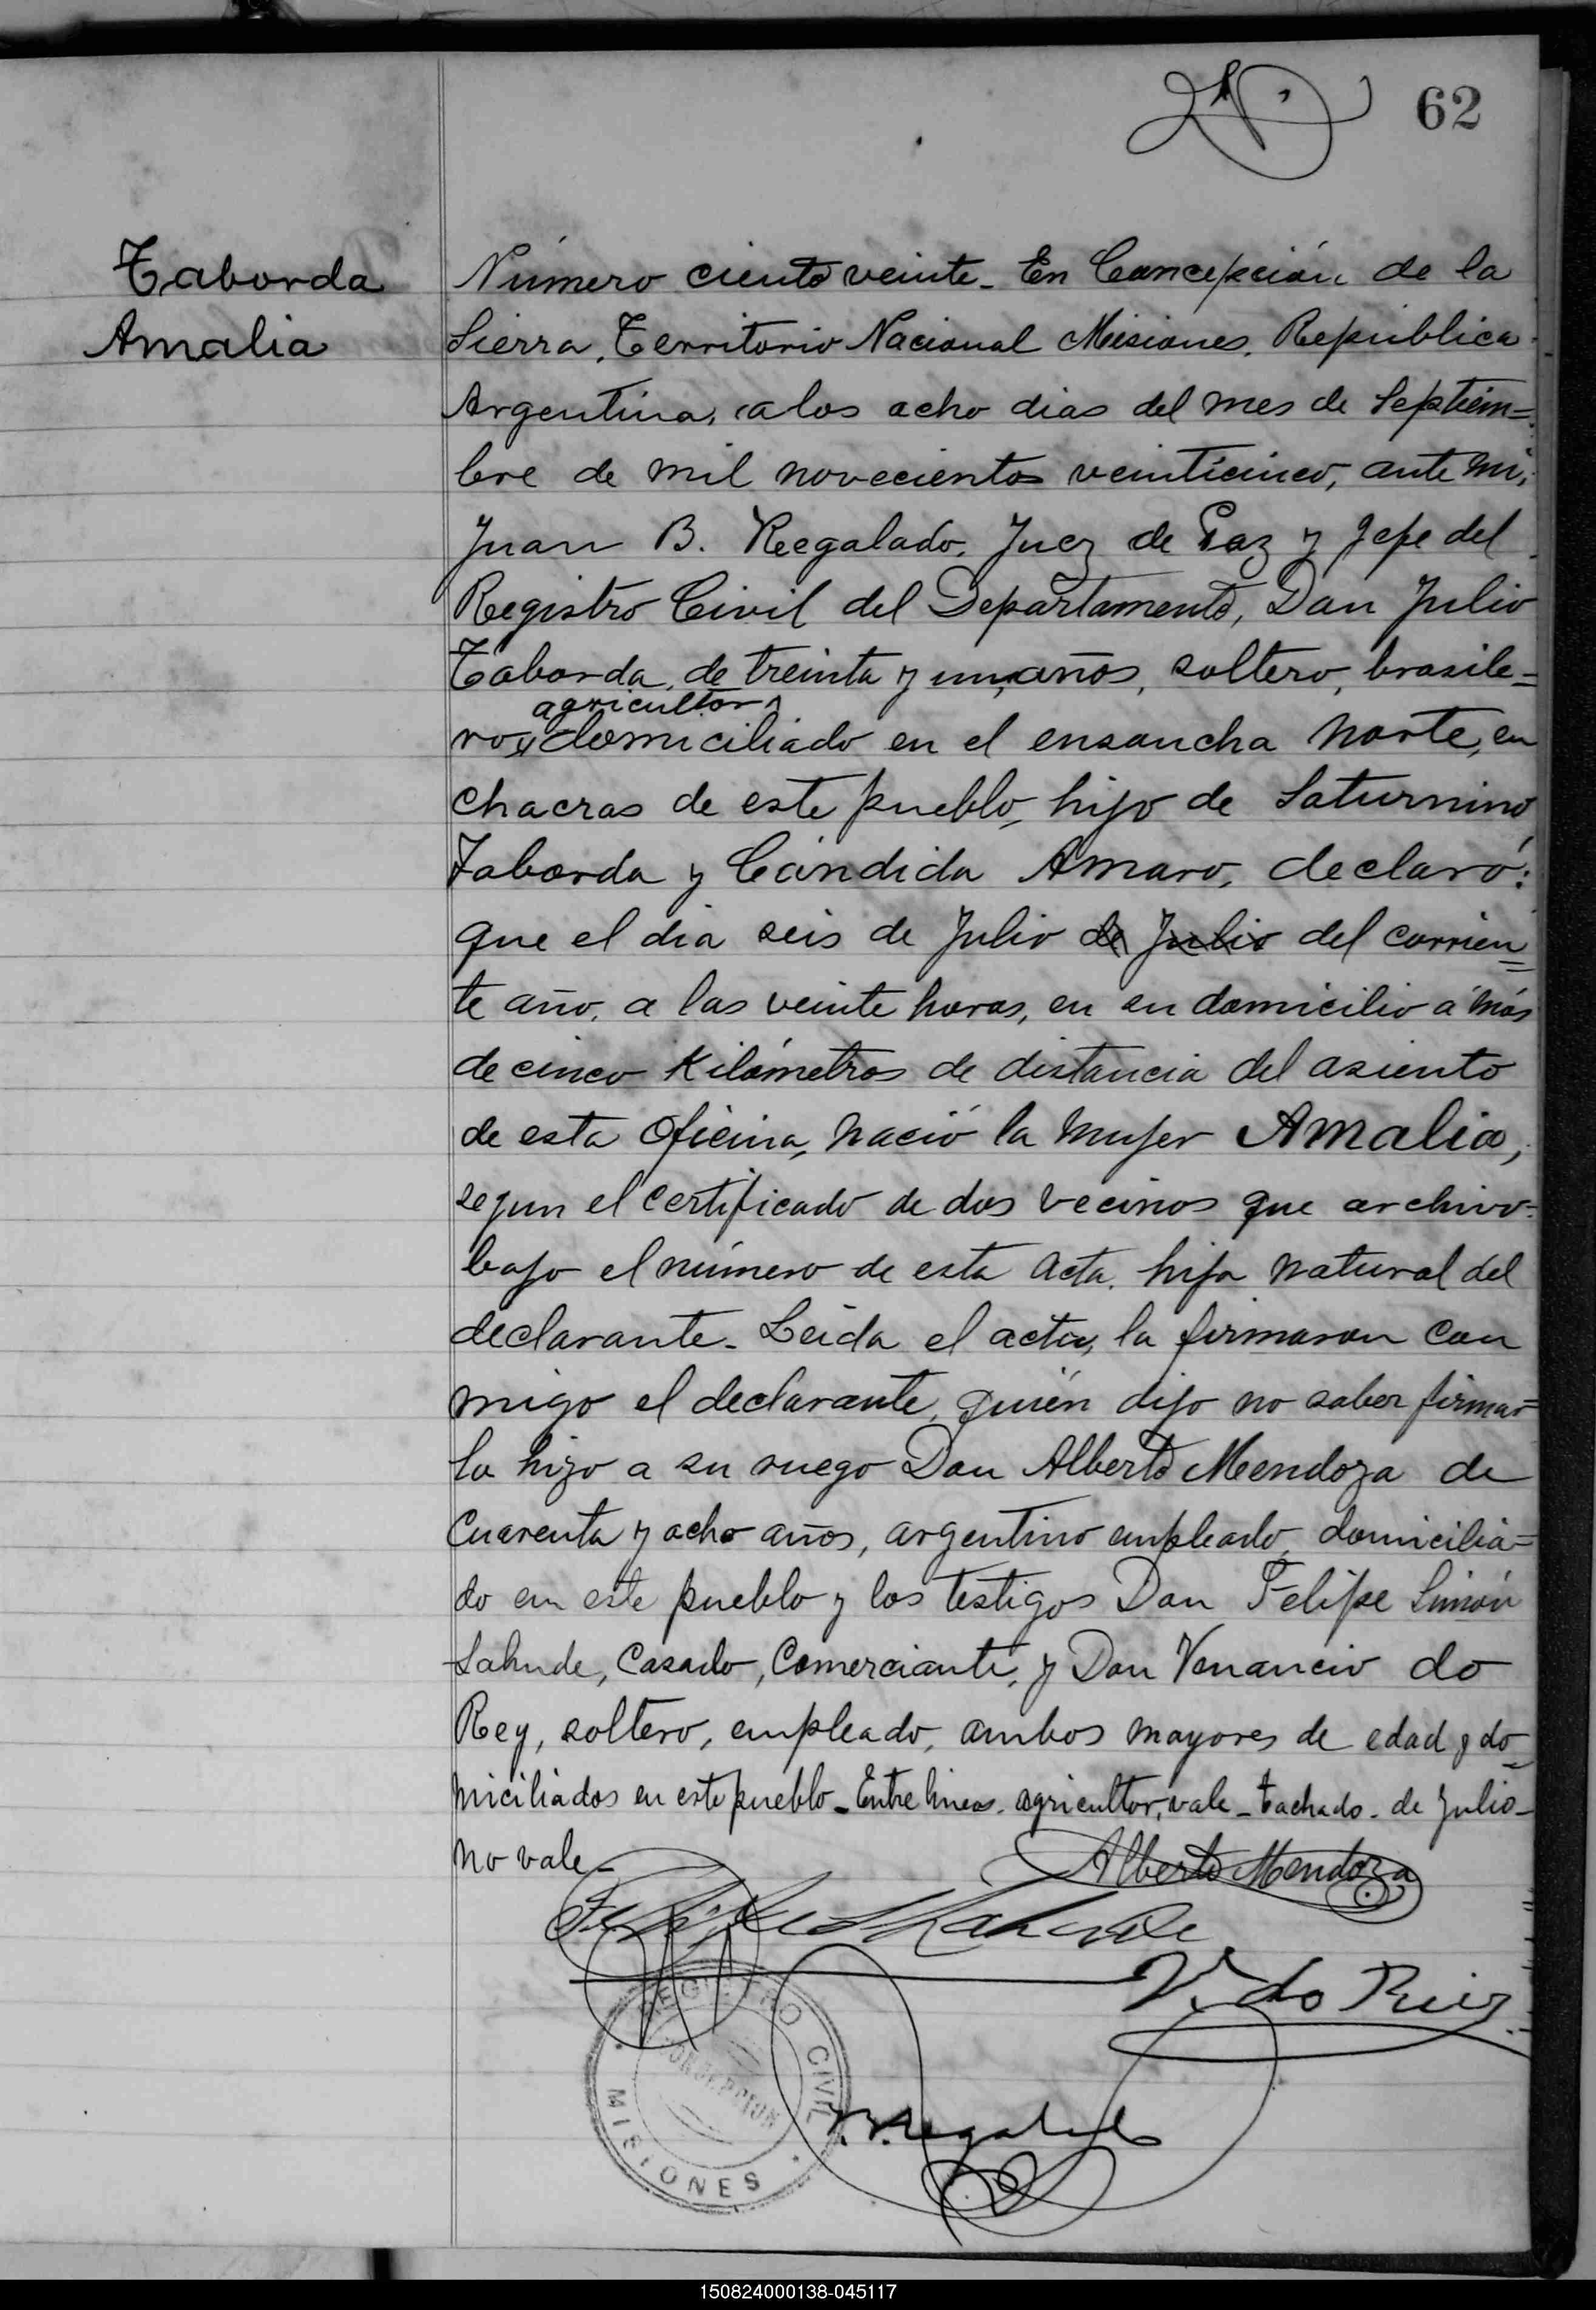 62
Taborda
Amalia
Número ciento veinte - En Concepción de la
Sierra, Territorio Nacional Misiones, República
Argentina, a los ocho dias del mes de Septiem=
bre de mil novecientos veinticinco, ante mi,
Juan B. Regalado, Juez de Paz y Jefe del
Registro Civil del Departamento, Don Julio
Taborda, de treinta y un años, soltero, brasile=
agricultor
ro, domiciliado en el ensancha Norte, en
chacras de este pueblo, hijo de Saturnino
Taborda y Cándida Amaro, declaró:
que el dia seis de Julio de Julio del corrien=
te año, a las veinte horas, en su domicilio á más
de cinco Kilómetros de distancia del asiento
de esta Oficina, nació la mujer Amalia,
segun el certificado de dos vecinos que archivo
bajo el número de esta acta, hija natural del
declarante - Leida el acta, la firmaron con
migo el declarante, quién dijo no saber firmar
lo hizo a su ruego Don Alberto Mendoza de
Cuarenta y ocho años, argentino empleado, domicilia=
do en este pueblo y los testigos Don Felipe Simón
Lahude, Casado, Comerciante, y Don Venancio do
Rey, soltero, empleado, ambos mayores de edad y do
miciliados en este pueblo - Entre lineas - agricultor, vale - tachado - de Julio -
no vale -
Alberto Mendoza
Felipe S Lahude
V. do Rey
REGISTRO CIVIL
CONCEPCION
MISIONES
J.B. Regalado
150824000138-045117